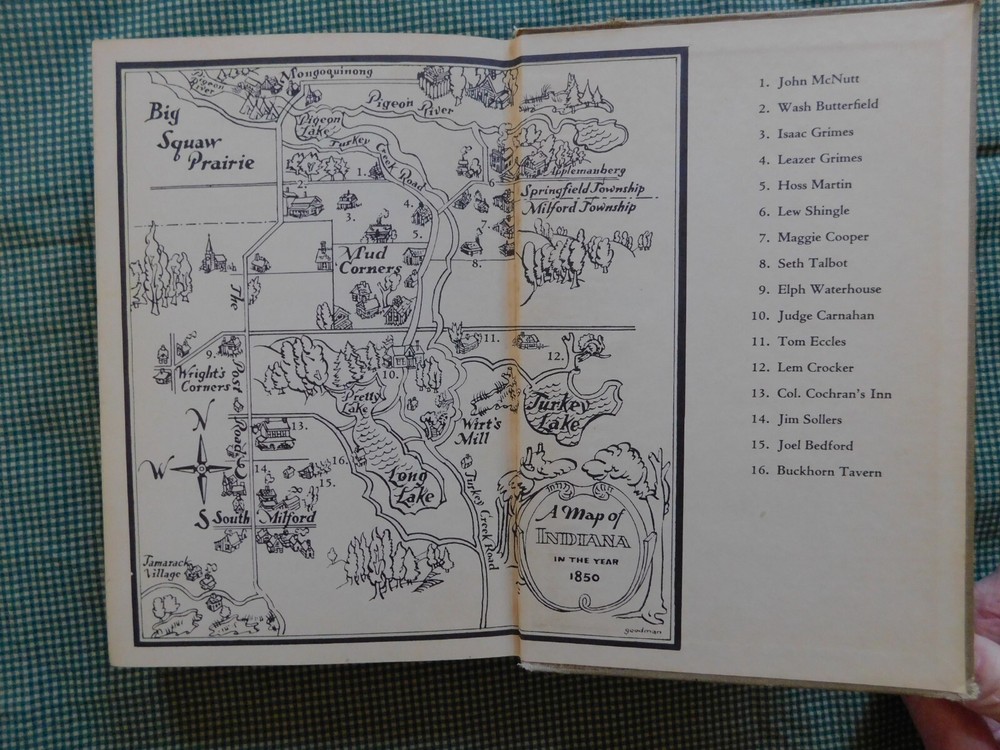 Mongoquinong
Pigeon
River
Pigeon
River
Big
Squaw
Prairie
Pigeon
Lake
Turkey Creek Road
1.
Applemanberg
2.
6.
Springfield Township
3.
4.
Milford Township
5.
7.
Mud
Corners
8.
The Post Road
9.
11.
12.
Wright's
Corners
10.
Pretty
Lake
Turkey
Lake
N
W
S
13.
Wirt's
Mill
14.
16.
15.
Long
Lake
Turkey Creek Road
South Milford
Tamarack
Village
A Map of
INDIANA
IN THE YEAR
1850
goodman
1. John McNutt
2. Wash Butterfield
3. Isaac Grimes
4. Leazer Grimes
5. Hoss Martin
6. Lew Shingle
7. Maggie Cooper
8. Seth Talbot
9. Elph Waterhouse
10. Judge Carnahan
11. Tom Eccles
12. Lem Crocker
13. Col. Cochran's Inn
14. Jim Sollers
15. Joel Bedford
16. Buckhorn Tavern